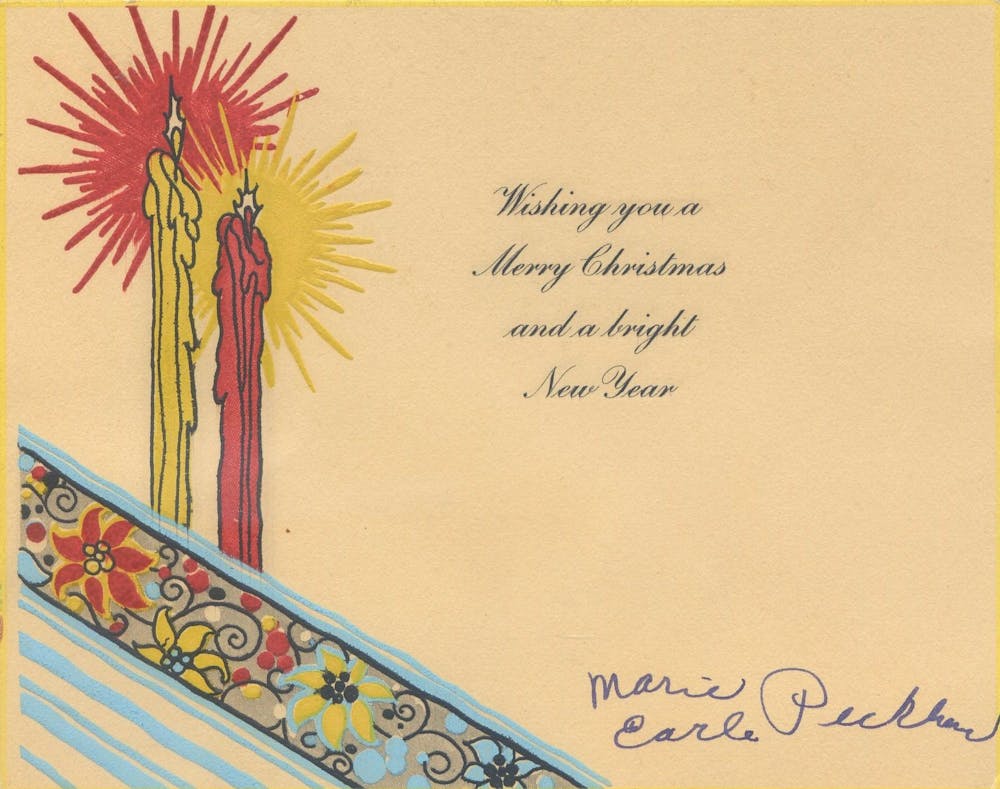 Wishing you a
Merry Christmas
and a bright
New Year
Marie
Earle Peckham